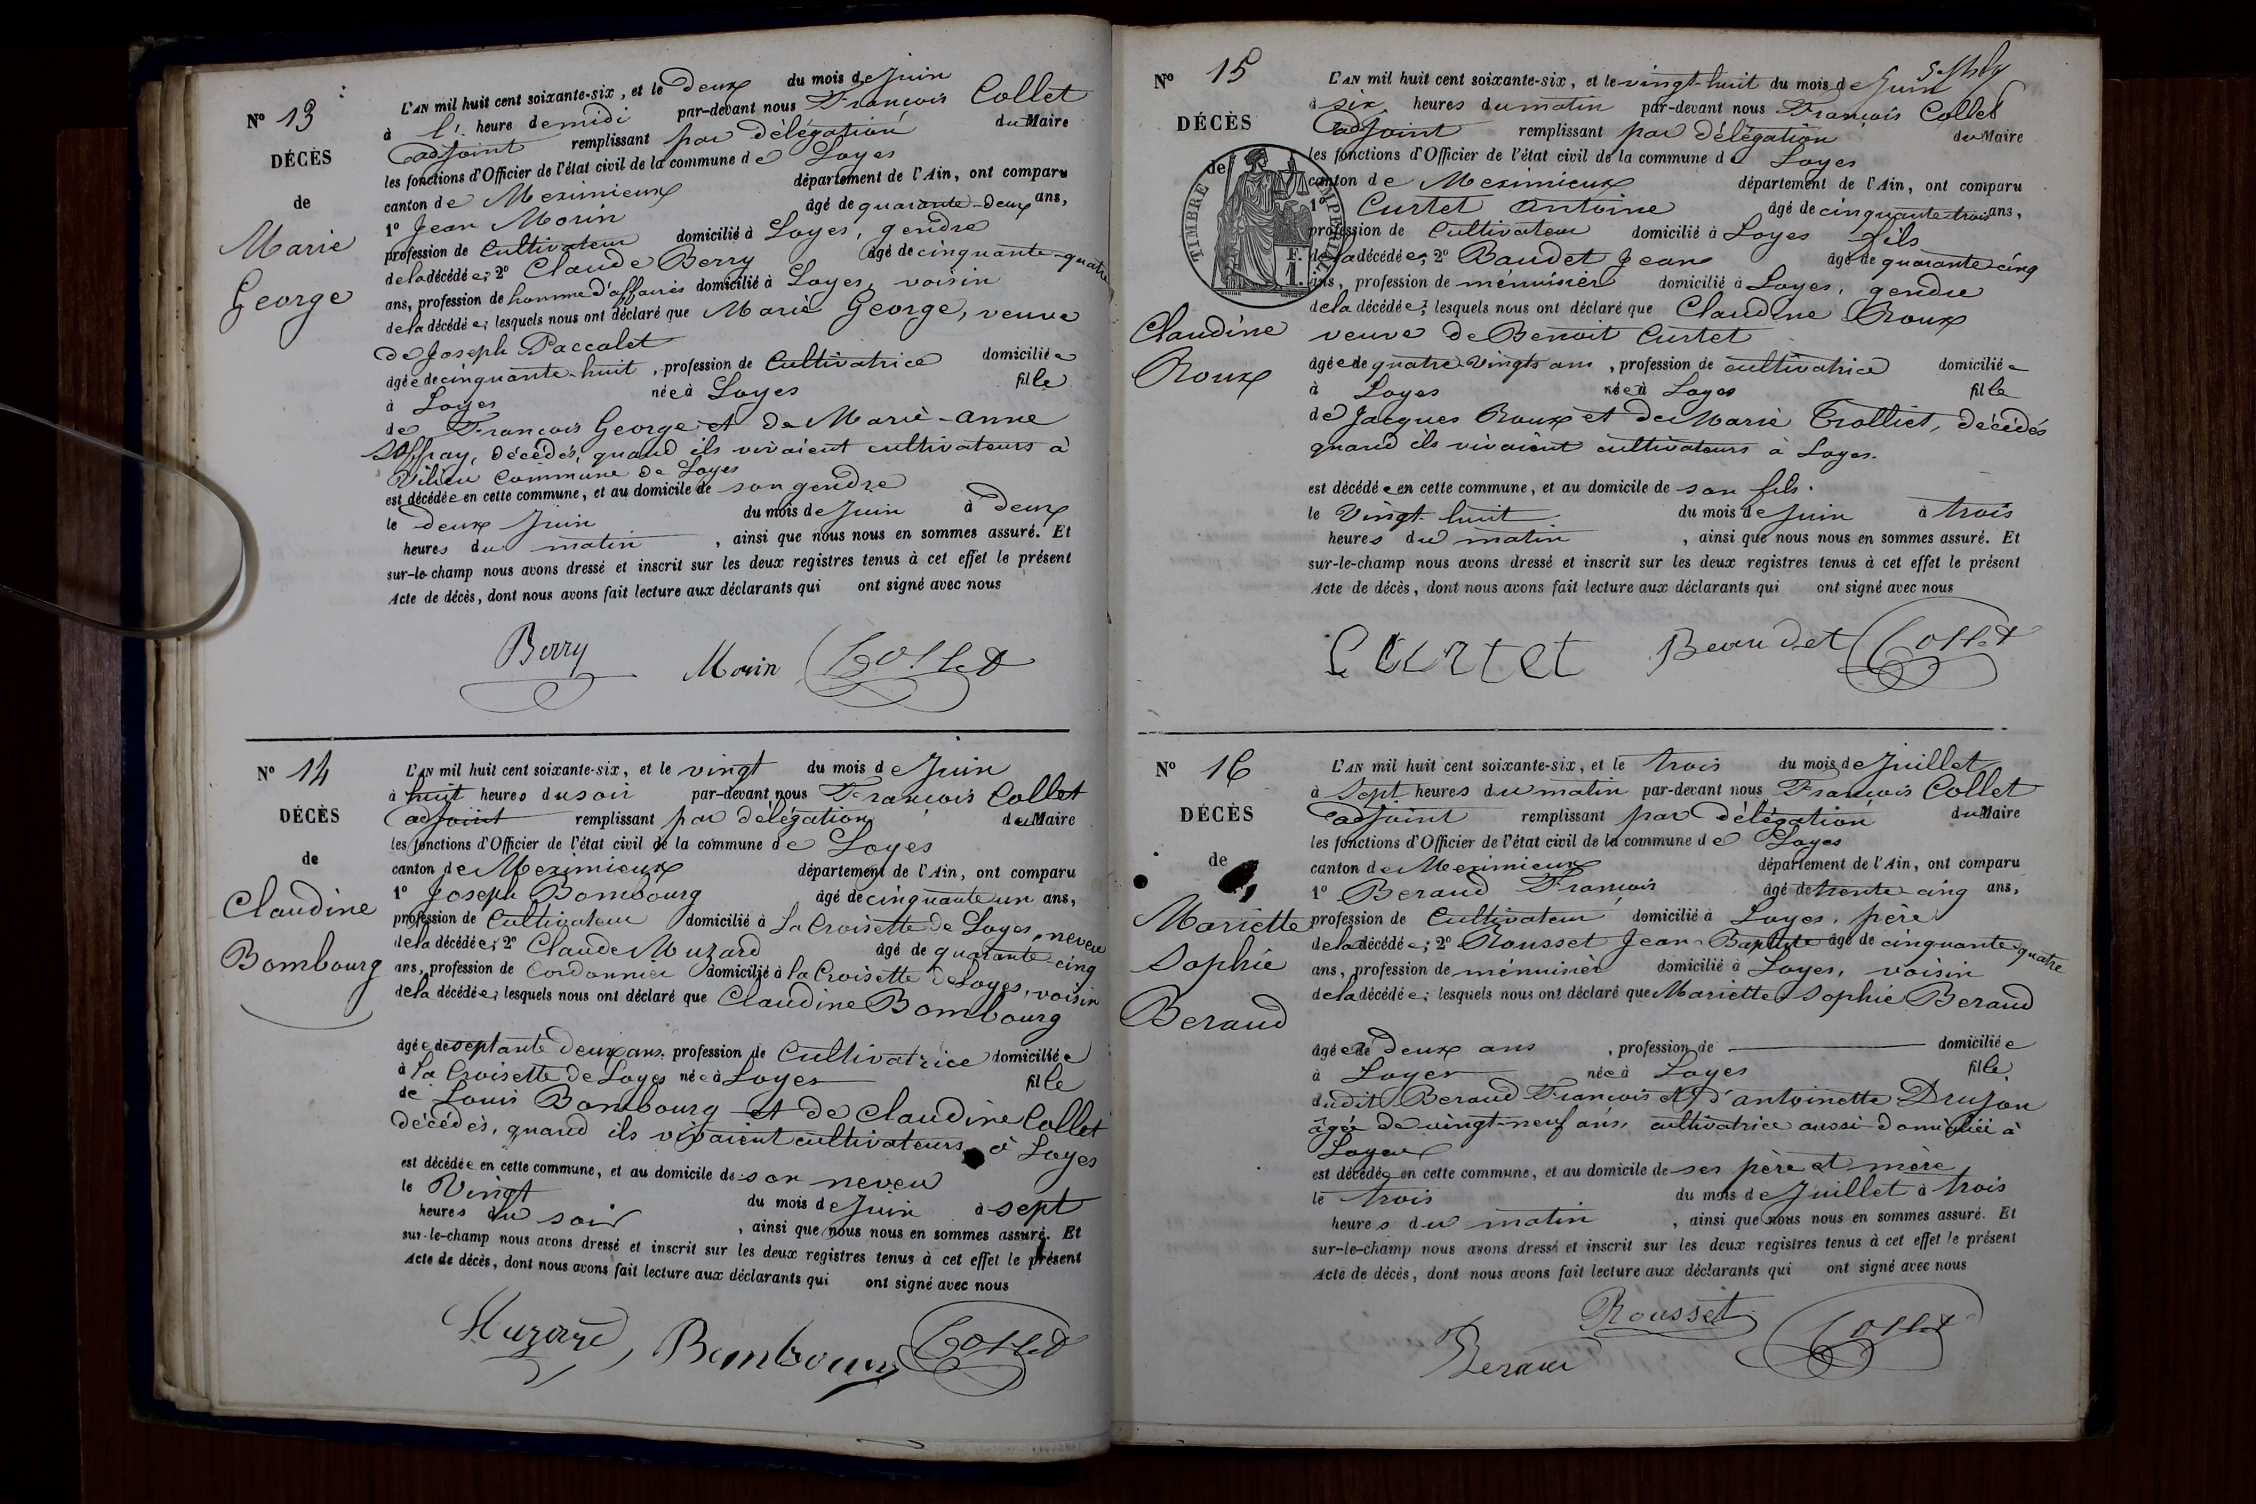 N° 13
DÉCÈS
de
Marie
George
L'AN mil huit cent soixante-six, et le deux du mois de Juin
à l'. heure de midi par-devant nous François Collet
adjoint remplissant par délégation du Maire
les fonctions d'Officier de l'état civil de la commune de Loyes
canton de Meximieux département de l'Ain, ont comparu
1° Jean Morin âgé de quarante-deux ans,
profession de Cultivateur domicilié à Loyes, gendre
de la décédée; 2° Claude Berry âgé de cinquante-quatre
ans, profession de homme d'affaires domicilié à Loyes, voisin
de la décédée; lesquels nous ont déclaré que Marie George, veuve
de Joseph Paccalet
âgée de cinquante-huit, profession de Cultivatrice domiciliée
à Loyes née à Loyes fille
de François George et de Marie-anne
Soffray, décédés, quand ils vivaient cultivateurs à
Vilieu Commune de Loyes
est décédée en cette commune, et au domicile de son gendre
le deux Juin du mois de Juin à deux
heures du matin, ainsi que nous nous en sommes assuré. Et
sur-le-champ nous avons dressé et inscrit sur les deux registres tenus à cet effet le présent
Acte de décès, dont nous avons fait lecture aux déclarants qui ont signé avec nous
Berry Morin Collet
N° 14
DÉCÈS
de
Claudine
Bombourg
L'AN mil huit cent soixante-six, et le vingt du mois de Juin
à huit heures du soir par-devant nous François Collet
adjoint remplissant par délégation du Maire
les fonctions d'Officier de l'état civil de la commune de Loyes
canton de Meximieux département de l'Ain, ont comparu
1° Joseph Bombourg âgé de cinquante un ans,
profession de Cultivateur domicilié à La Croisette de Loyes, neveu
de la décédée; 2° Claude Muzard âgé de quarante cinq
ans, profession de Cordonnier domicilié à la Croisette de Loyes, voisin
de la décédée; lesquels nous ont déclaré que Claudine Bombourg
âgée de septante deux ans, profession de Cultivatrice domiciliée
à la Croisette de Loyes née à Loyes fille
de Louis Bombourg et de Claudine Collet
décédés, quand ils vivaient cultivateurs à Loyes
est décédée en cette commune, et au domicile de son neveu
le Vingt du mois de Juin à sept
heures du soir, ainsi que nous nous en sommes assuré. Et
sur-le-champ nous avons dressé et inscrit sur les deux registres tenus à cet effet le présent
Acte de décès, dont nous avons fait lecture aux déclarants qui ont signé avec nous
Muzard Bombourg Collet
N° 15
DÉCÈS
de
TIMBRE IMPERIAL
1 F.
Claudine
Roux
L'AN mil huit cent soixante-six, et le vingt-huit du mois de Juin
à six heures du matin par-devant nous François Collet
adjoint remplissant par délégation du Maire
les fonctions d'Officier de l'état civil de la commune de Loyes
canton de Meximieux département de l'Ain, ont comparu
1° Curtet Antoine âgé de cinquante trois ans,
profession de Cultivateur domicilié à Loyes fils
de la décédée; 2° Baudet Jean âgé de quarante cinq
ans, profession de ménuisier domicilié à Loyes, gendre
de la décédée; lesquels nous ont déclaré que Claudine Roux
veuve de Benoit Curtet
âgée de quatre vingts ans, profession de cultivatrice domiciliée
à Loyes née à Loyes fille
de Jacques Roux et de Marie Trolliet, décédés
quand ils vivaient cultivateurs à Loyes.
est décédée en cette commune, et au domicile de son fils.
le Vingt-huit du mois de Juin à trois
heures du matin, ainsi que nous nous en sommes assuré. Et
sur-le-champ nous avons dressé et inscrit sur les deux registres tenus à cet effet le présent
Acte de décès, dont nous avons fait lecture aux déclarants qui ont signé avec nous
Curtet Beaudet Collet
N° 16
DÉCÈS
de
Mariette
Sophie
Beraud
L'AN mil huit cent soixante-six, et le trois du mois de Juillet
à sept heures du matin par-devant nous François Collet
adjoint remplissant par délégation du Maire
les fonctions d'Officier de l'état civil de la commune de Loyes
canton de Meximieux département de l'Ain, ont comparu
1° Beraud François âgé de trente cinq ans,
profession de Cultivateur domicilié à Loyes, père
de la décédée; 2° Rousset Jean-Baptiste âgé de cinquante quatre
ans, profession de ménuisier domicilié à Loyes, voisin
de la décédée; lesquels nous ont déclaré que Mariette Sophie Beraud
âgée de deux ans, profession de domiciliée
à Loyes née à Loyes fille
dudit Beraud François et d'antoinette Drujon
âgée de vingt-neuf ans, cultivatrice aussi domiciliée à
Loyes
est décédée en cette commune, et au domicile de ses père et mère
le trois du mois de Juillet à trois
heures du matin, ainsi que nous nous en sommes assuré. Et
sur-le-champ nous avons dressé et inscrit sur les deux registres tenus à cet effet le présent
Acte de décès, dont nous avons fait lecture aux déclarants qui ont signé avec nous
Rousset Collet
Beraud